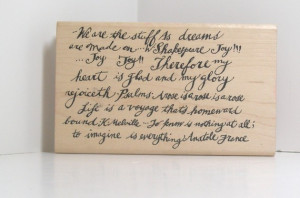 We are the stuff as dreams
are made on... W Shakespeare Joy!!!
...Joy Joy!! Therefore my
heart is glad and my glory
rejoiceth. Psalms. A rose is a rose is a rose
Life is a voyage thats homeward
bound H. Melville - To know is nothing at all;
to imagine is everything. Anatole France